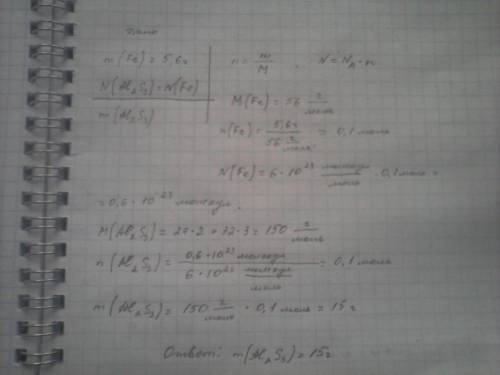 Дано
m(Fe) = 5,6г
N(Al₂S₃) = N(Fe)
m(Al₂S₃)
n = m/M , N = Nₐ · n
M(Fe) = 56 г/моль
n(Fe) = 5,6г / 56 г/моль = 0,1 моль
N(Fe) = 6 · 10²³ молекул/моль · 0,1 моль =
= 0,6 · 10²³ молекул.
M(Al₂S₃) = 27·2 + 32·3 = 150 г/моль
n(Al₂S₃) = 0,6·10²³ молекул / 6·10²³ молекул/моль = 0,1 моль
m(Al₂S₃) = 150 г/моль · 0,1 моль = 15 г
Ответ: m(Al₂S₃) = 15г.